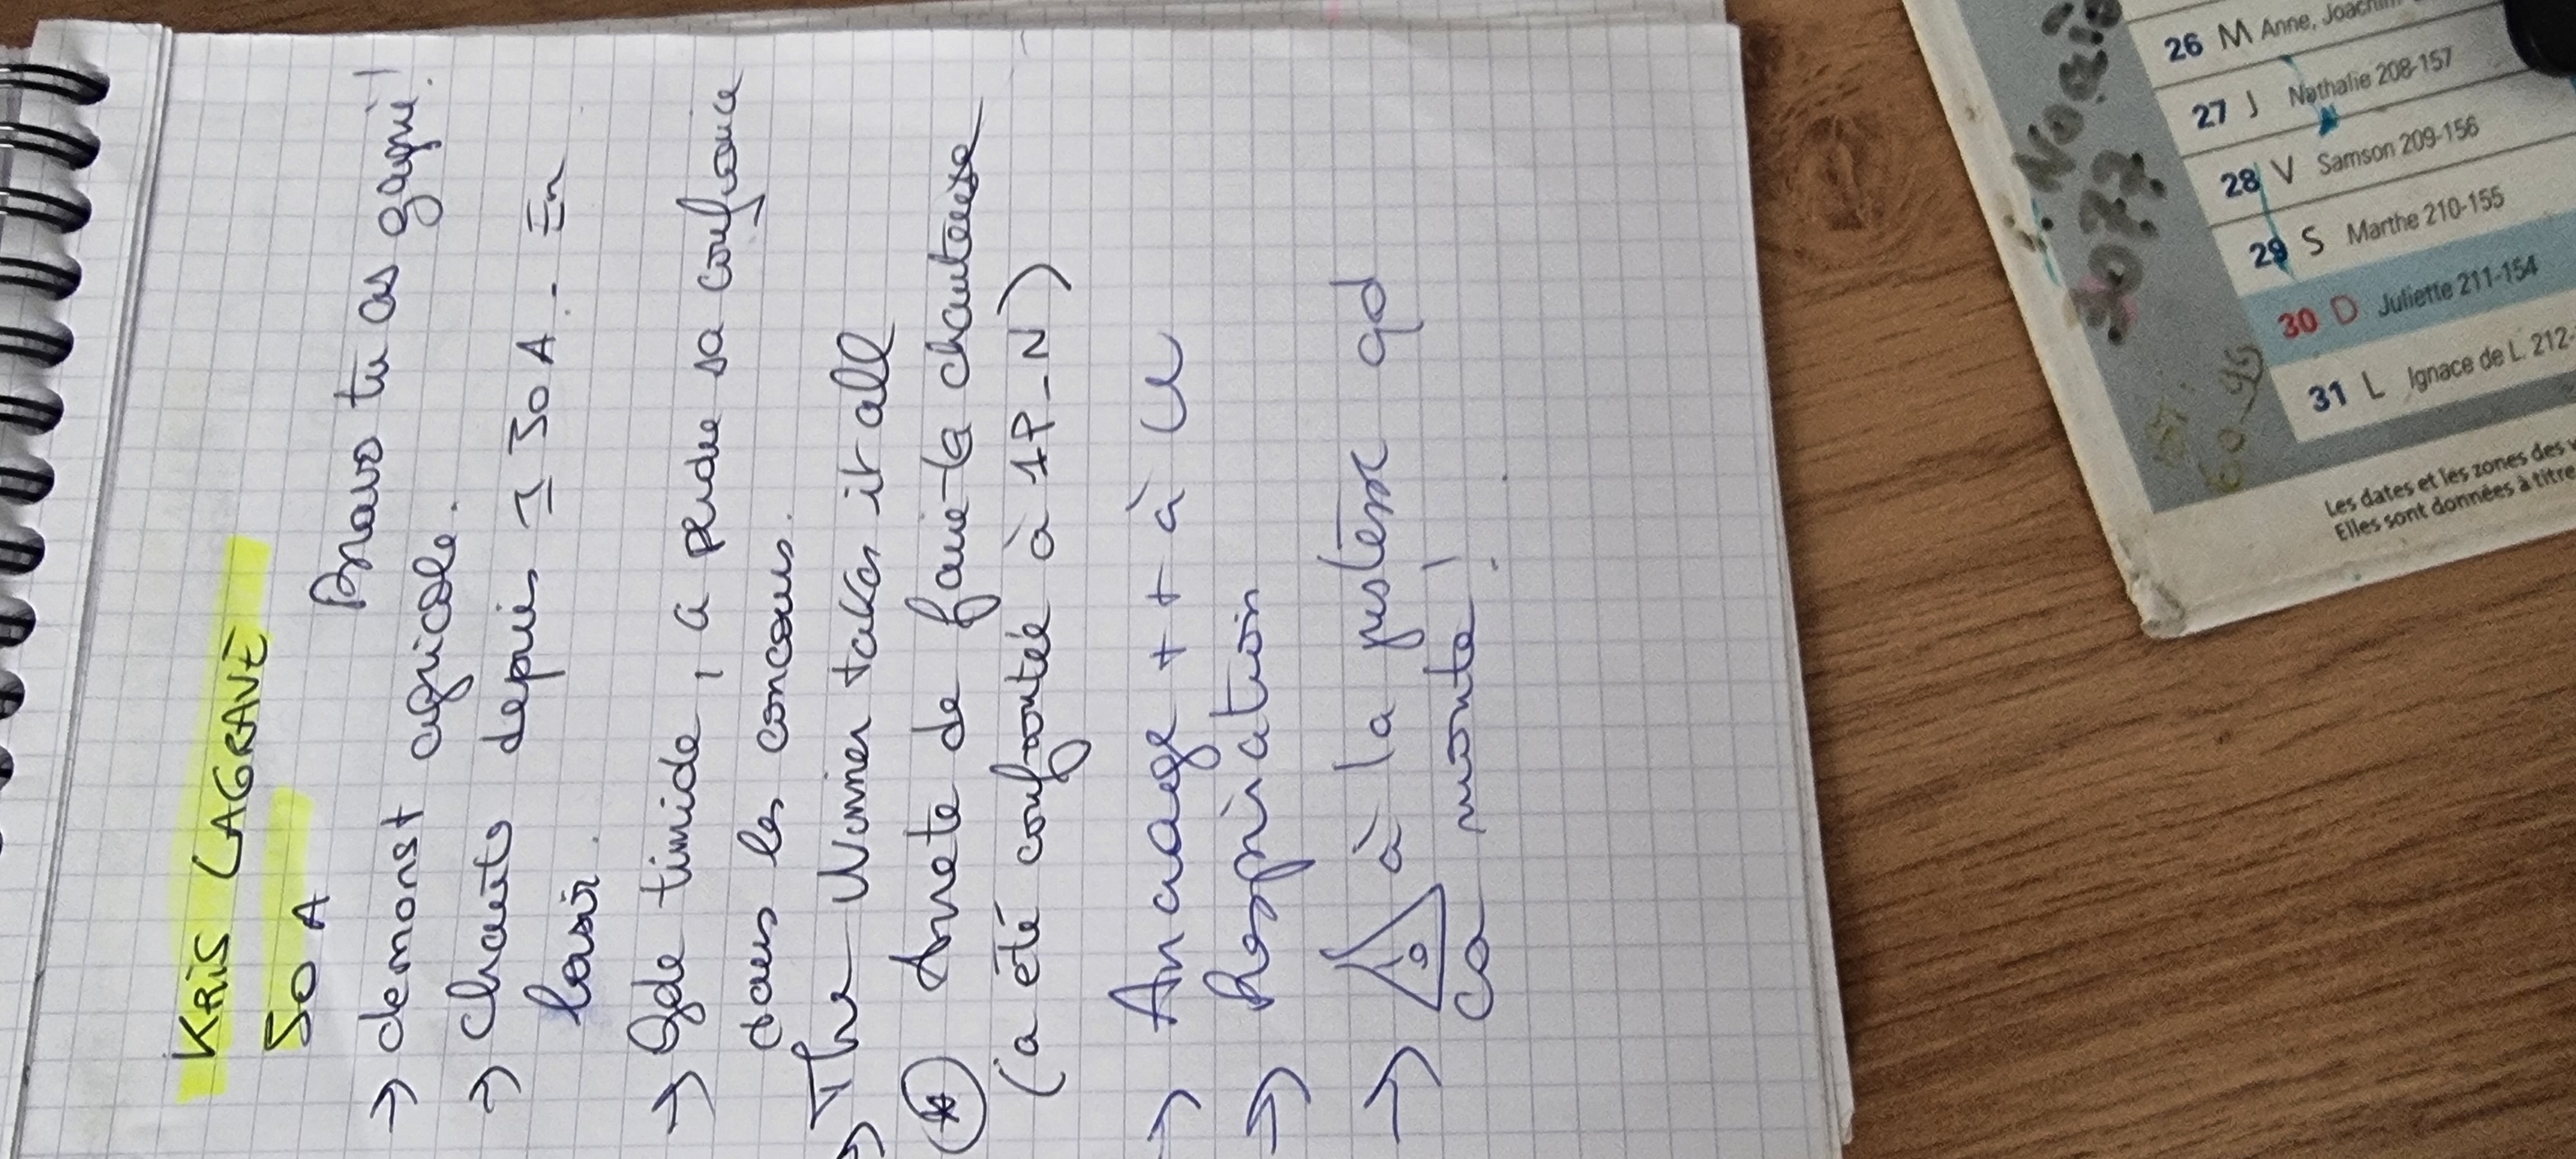 KRIS LAGRAVE
50 A
Bravo tu as gagné!
→ demonst agricole.
→ Chante depuis I 30 A. - En
loisir.
→ gde timide, a perdu sa confiance
dans les concours.
→ The Winner takes it all
* Arrete de faire la chanteuse
(a été confrontée à 1P_N)
→ Ancrage + + à U
→ Respiration
→ à la justesse qd
Ca monte!
26 M Anne, Joachim
27 J Nathalie 208-157
28 V Samson 209-156
29 S Marthe 210-155
30 D Juliette 211-154
31 L Ignace de L. 212-
Les dates et les zones des
Elles sont données à titre
3077
60-95